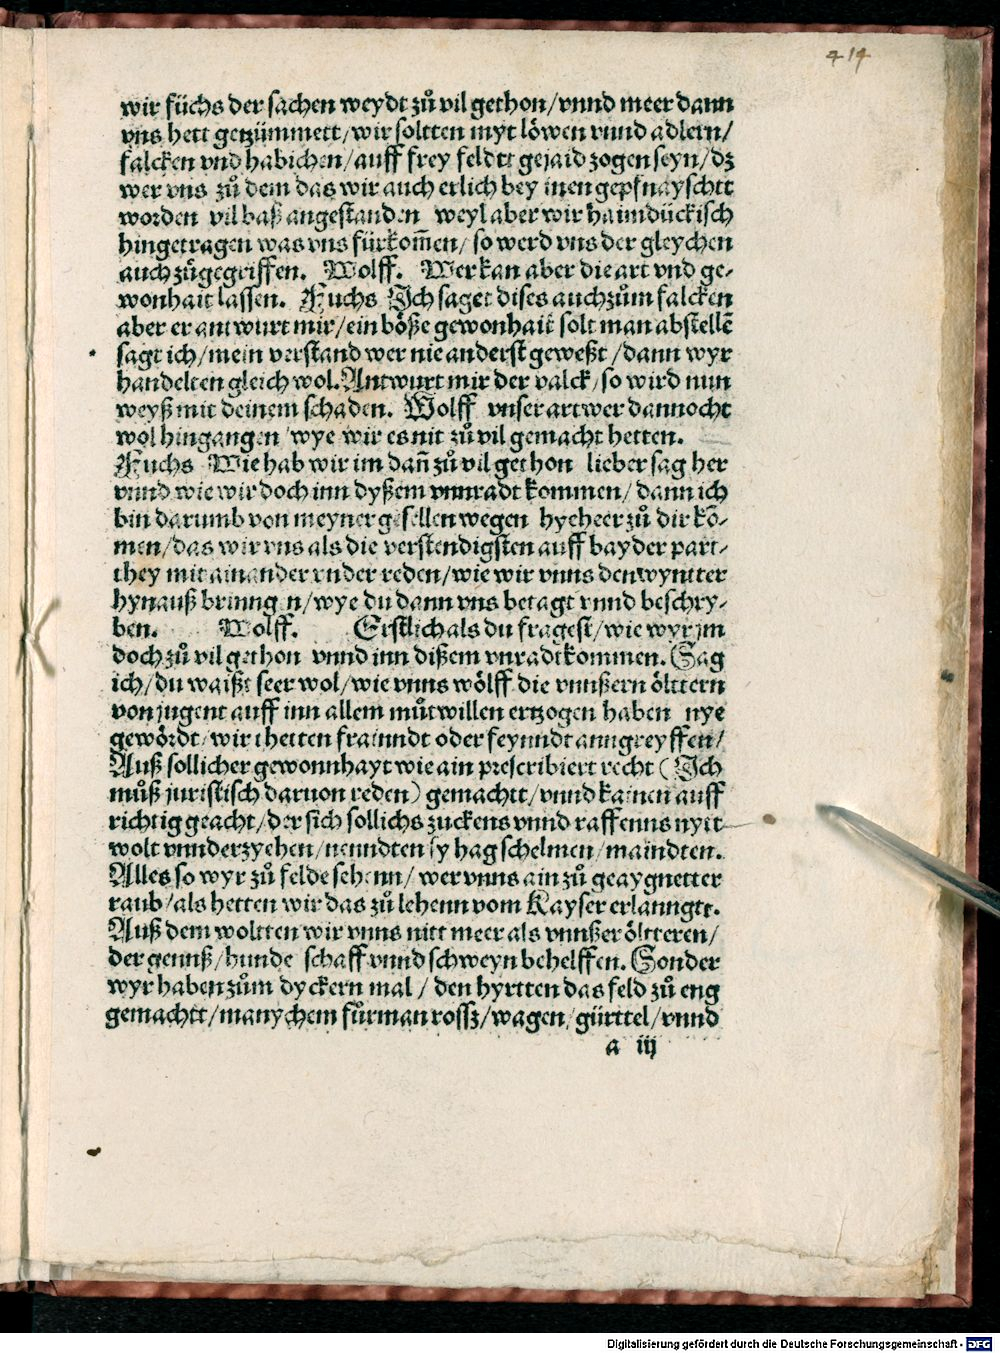 414
wir füchs der sachen weydt zů vil gethon/vnnd meer dann
vns hett getzümmett/wir soltten myt löwen vnnd adlern/
falcken vnd habichen/auff frey feldtt gejaid zogen seyn/dz
wer vns zů dem das wir auch erlich bey inen gepfnayschtt
worden vil baß angestanden weyl aber wir haimdückisch
hingetragen was vns fürkom̄en/so werd vns der gleychen
auch zůgegriffen. Wolff. Wer kan aber die art vnd ge-
wonhait lassen. Fuchs Ich saget dises auch zům falcken
aber er antwurt mir/ein böße gewonhait solt man abstellē
sagt ich/mein verstand wer nie anderst geweßt/dann wyr
handelten gleich wol. Antwurt mir der valck/so wird nun
weyß mit deinem schaden. Wolff vnser art wer dannocht
wol hingangen wye wir es nit zů vil gemacht hetten.
Fuchs Wie hab wir im dan̄ zů vil gethon lieber sag her
vnnd wie wir doch inn dyßem vnnradt kommen/dann ich
bin darumb von meyner gesellen wegen hycheer zů dir kō-
men/das wir vns als die verstendigsten auff bayder part-
they mit ainander vnder reden/wie wir vnns den wyntter
hynauß brinngen/wye du dann vns betagt vnnd beschry-
ben. Wolff. Erstlich als du fragest/wie wyr jm
doch zů vil gethon vnnd inn dißem vnradt kommen. Sag
ich/du waißt seer wol/wie vnns wölff die vnnßern ölttern
von jugent auff inn allem můtwillen ertzogen haben nye
gewördt/wir thetten frainndt oder feynndt anngreyffen/
Auß sollicher gewonnhayt wie ain prescribiert recht (Ich
můß juristisch daruon reden) gemachtt/vnnd kainen auff
richtig geacht/der sich sollichs zuckens vnnd raffenns nytt
wolt vnnderzyehen/nenndten sy hagschelmen/maindten.
Alles so wyr zů felde sehenn/wer vnns ain zů geaygnetter
raub/als hetten wir das zů lehenn vom Kayser erlanngtt.
Auß dem woltten wir vnns nitt meer als vnnßer öltteren/
der gennß/hunde schaff vnnd schweyn behelffen. Sonder
wyr haben zům dyckern mal/den hyrtten das feld zů eng
gemachtt/manychem fůrman rossz/wagen/gürttel/vnnd
a iij
Digitalisierung gefördert durch die Deutsche Forschungsgemeinschaft - DFG